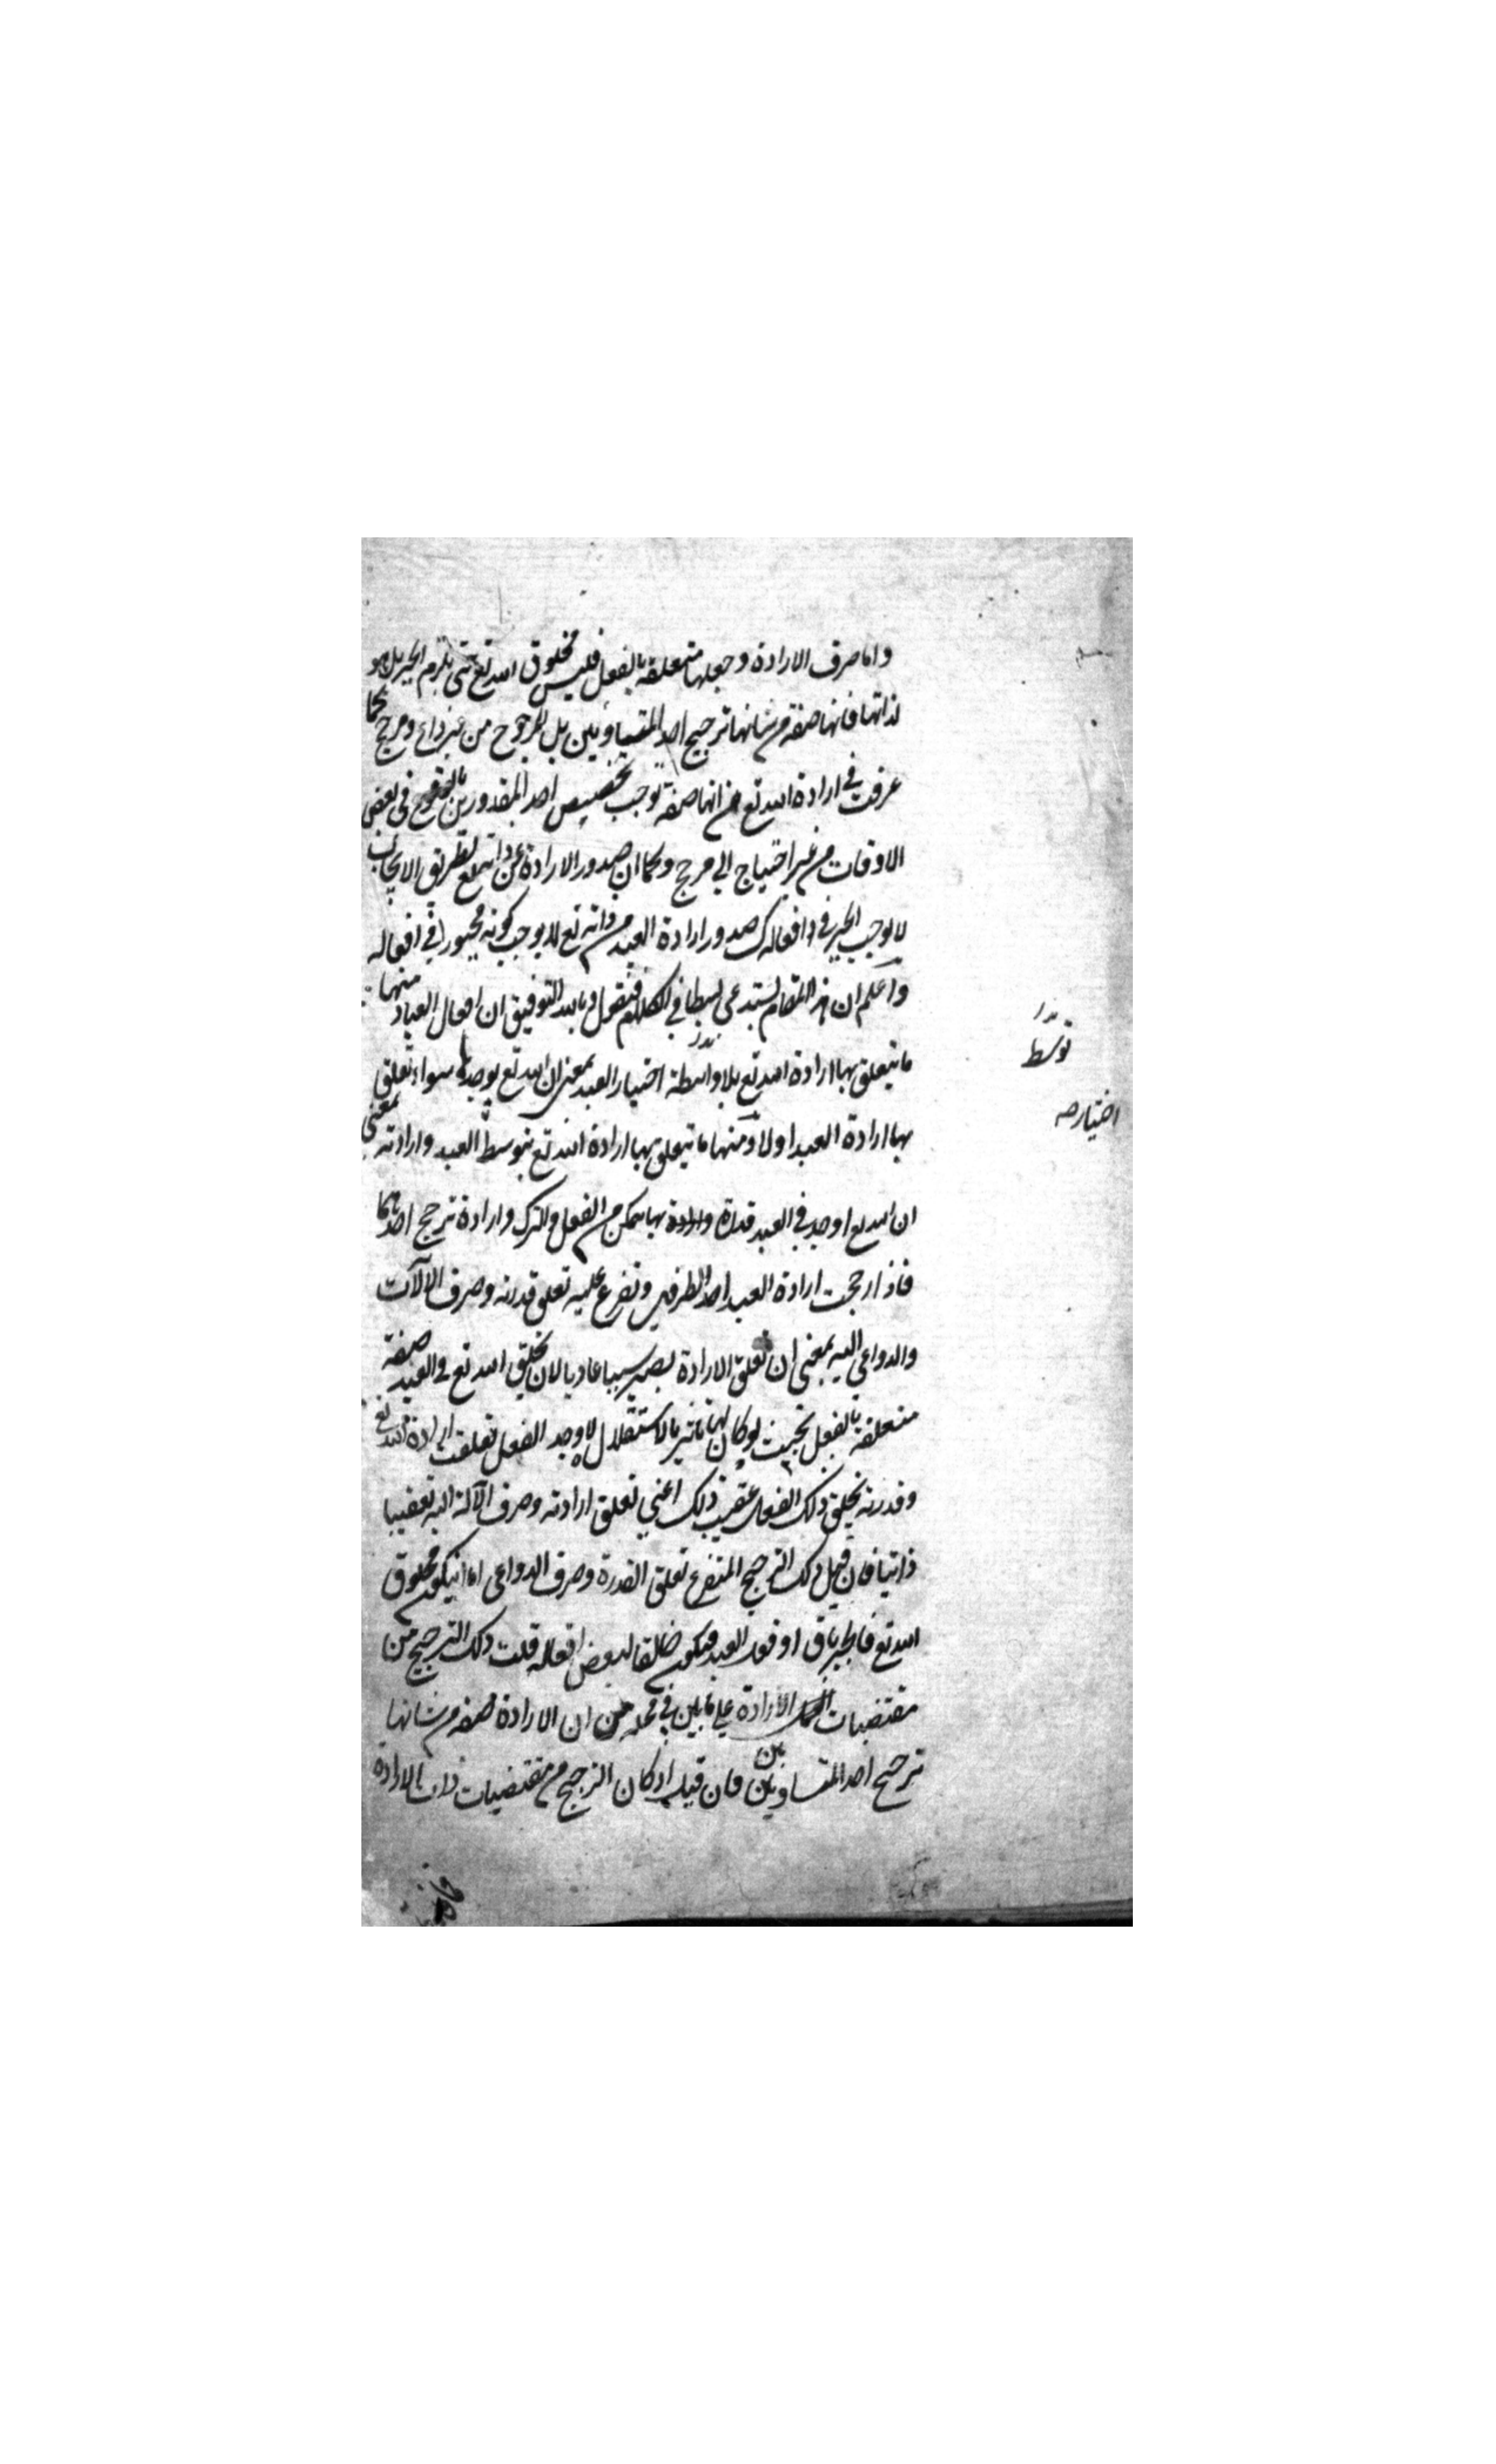 واما صرف الارادة وجعلها متعلقة بالفعل فليس مخلوق الله تع حتى يلزم الجبر بل هو
لذاتها فانها صفة من شانها ترجيح احد المتساويين بل المرجوح من غير داع ومرجح كما
عرفت في ارادة الله تع من انها صفة توجب تخصيص احد المقدورين بالوقوع في بعض
الاوقات من غير احتياج الى مرجح وكما ان صدور الارادة عن ذاته تع بطريق الايجاب
لا يوجب الجبر في افعاله كك صدور ارادة العبد من ذاته تع لا يوجب كونه مجبورا في افعاله
واعلم ان هذا المقام يستدعى بسطا في الكلام فنقول وبالله التوفيق ان افعال العباد منها
ما يتعلق بها ارادة الله تع بلا واسطة اختيار العبد بمعنى ان الله تع يوجده سواء تعلق
بها ارادة العبد اولا ومنها ما يتعلق بها ارادة الله تع بتوسط العبد وارادته بمعنى
توسط
اختياره صه
ان الله تع اوجد في العبد قدرة وارادة بها يتمكن من الفعل والترك وارادة ترجح احدهما
فاذا رجحت ارادة العبد احد الطرفين وتفرع عليه تعلق قدرته وصرف الالات
والدواعي اليه بمعنى ان تعلق الارادة يصير سببا عاديا لان يخلق الله تع في العبد صفة
متعلقة بالفعل بحيث لو كان لها تاثير بالاستقلال لاوجد الفعل تعلقت ارادة الله تع
وقدرته بخلق ذلك الفعل عقيب ذلك اعني تعلق ارادته وصرف الآلة اليه تعقيبا
ذاتيا فان قيل ذلك الترجيح المتفرع تعلق القدرة وصرف الدواعي اما ان يكون مخلوق
الله تع فالجبر باق او فعل العبد فيكون خالقا لبعض افعاله قلت ذلك الترجيح من
مقتضيات الارادة على ما بين في محله من ان الارادة صفة من شانها
ترجيح احد المتساويين فان قيل اذ كان الترجيح من مقتضيات ذات الارادة